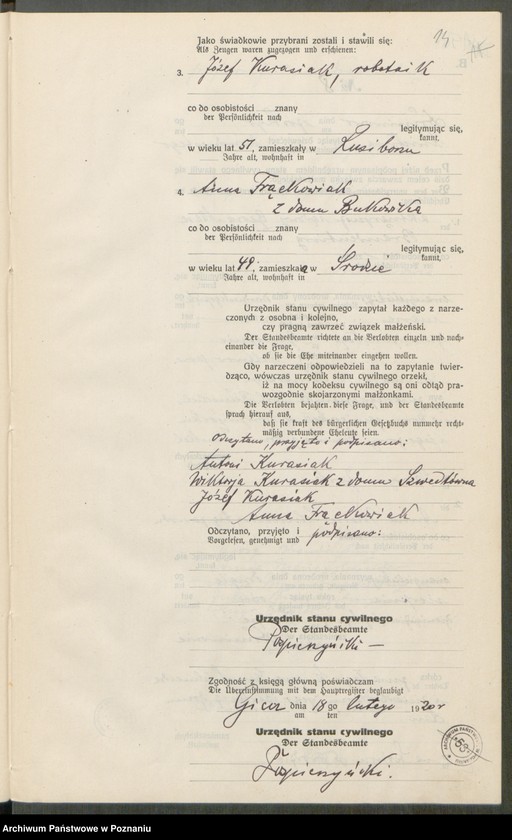 14
Jako świadkowie przybrani zostali i stawili się:
Als Zeugen waren zugezogen und erschienen:
3. Józef Kurasiak, robotnik
co do osobistości znany
der Persönlichkeit nach
legitymując się,
kannt,
w wieku lat 51, zamieszkały w
Jahre alt, wohnhaft in
4. Anna Frąckowiak
z domu Bukowska
co do osobistości znany
der Persönlichkeit nach
legitymując się,
kannt,
w wieku lat 49, zamieszkała w Środzie
Jahre alt, wohnhaft in
Urzędnik stanu cywilnego zapytał każdego z narze-
czonych z osobna i kolejno,
czy pragną zawrzeć związek małżeński.
Der Standesbeamte richtete an die Verlobten einzeln und nach-
einander die Frage,
ob sie die Ehe miteinander eingehen wollen.
Gdy narzeczeni odpowiedzieli na to zapytanie twier-
dząco, wówczas urzędnik stanu cywilnego orzekł,
iż na mocy kodeksu cywilnego są oni odtąd pra-
wozgodnie skojarzonymi małżonkami.
Die Verlobten bejahten diese Frage, und der Standesbeamte
sprach hierauf aus,
daß sie kraft des bürgerlichen Gesetzbuchs nunmehr recht-
mäßig verbundene Eheleute seien.
Odczytano, przyjęto i podpisano:
Antoni Kurasiak
Wiktorja Kurasiak z domu Szwedkówna
Józef Kurasiak
Anna Frąckowiak
Odczytano, przyjęto i podpisano:
Vorgelesen, genehmigt und
Urzędnik stanu cywilnego
Der Standesbeamte
Zgodność z księgą główną poświadczam
Die Übereinstimmung mit dem Hauptregister beglaubigt
Giecz dnia 18go lutego 1920r
am ten
Urzędnik stanu cywilnego
Der Standesbeamte
53
Archiwum Państwowe w Poznaniu